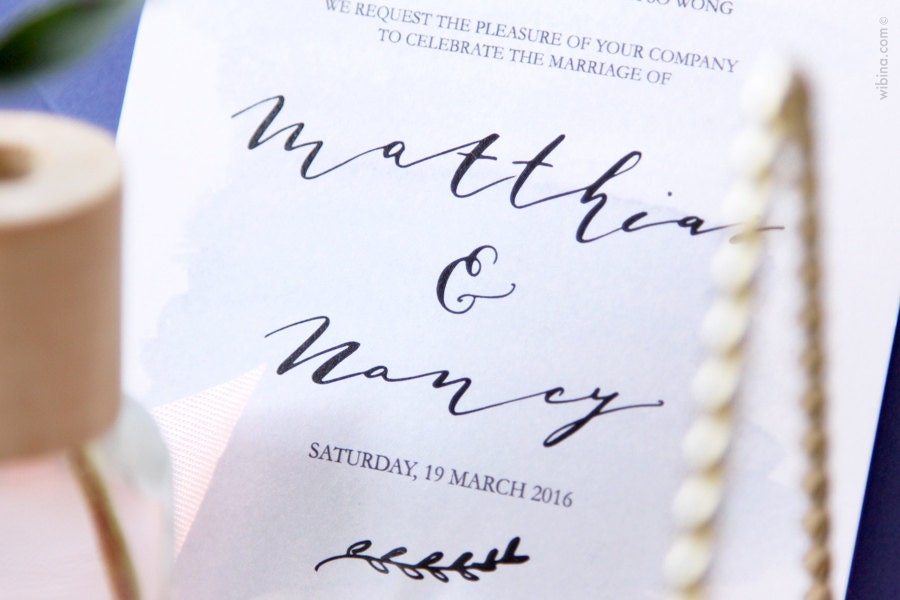 WONG
WE REQUEST THE PLEASURE OF YOUR COMPANY
TO CELEBRATE THE MARRIAGE OF
Matthias
&
Nancy
SATURDAY, 19 MARCH 2016
wibina.com ©